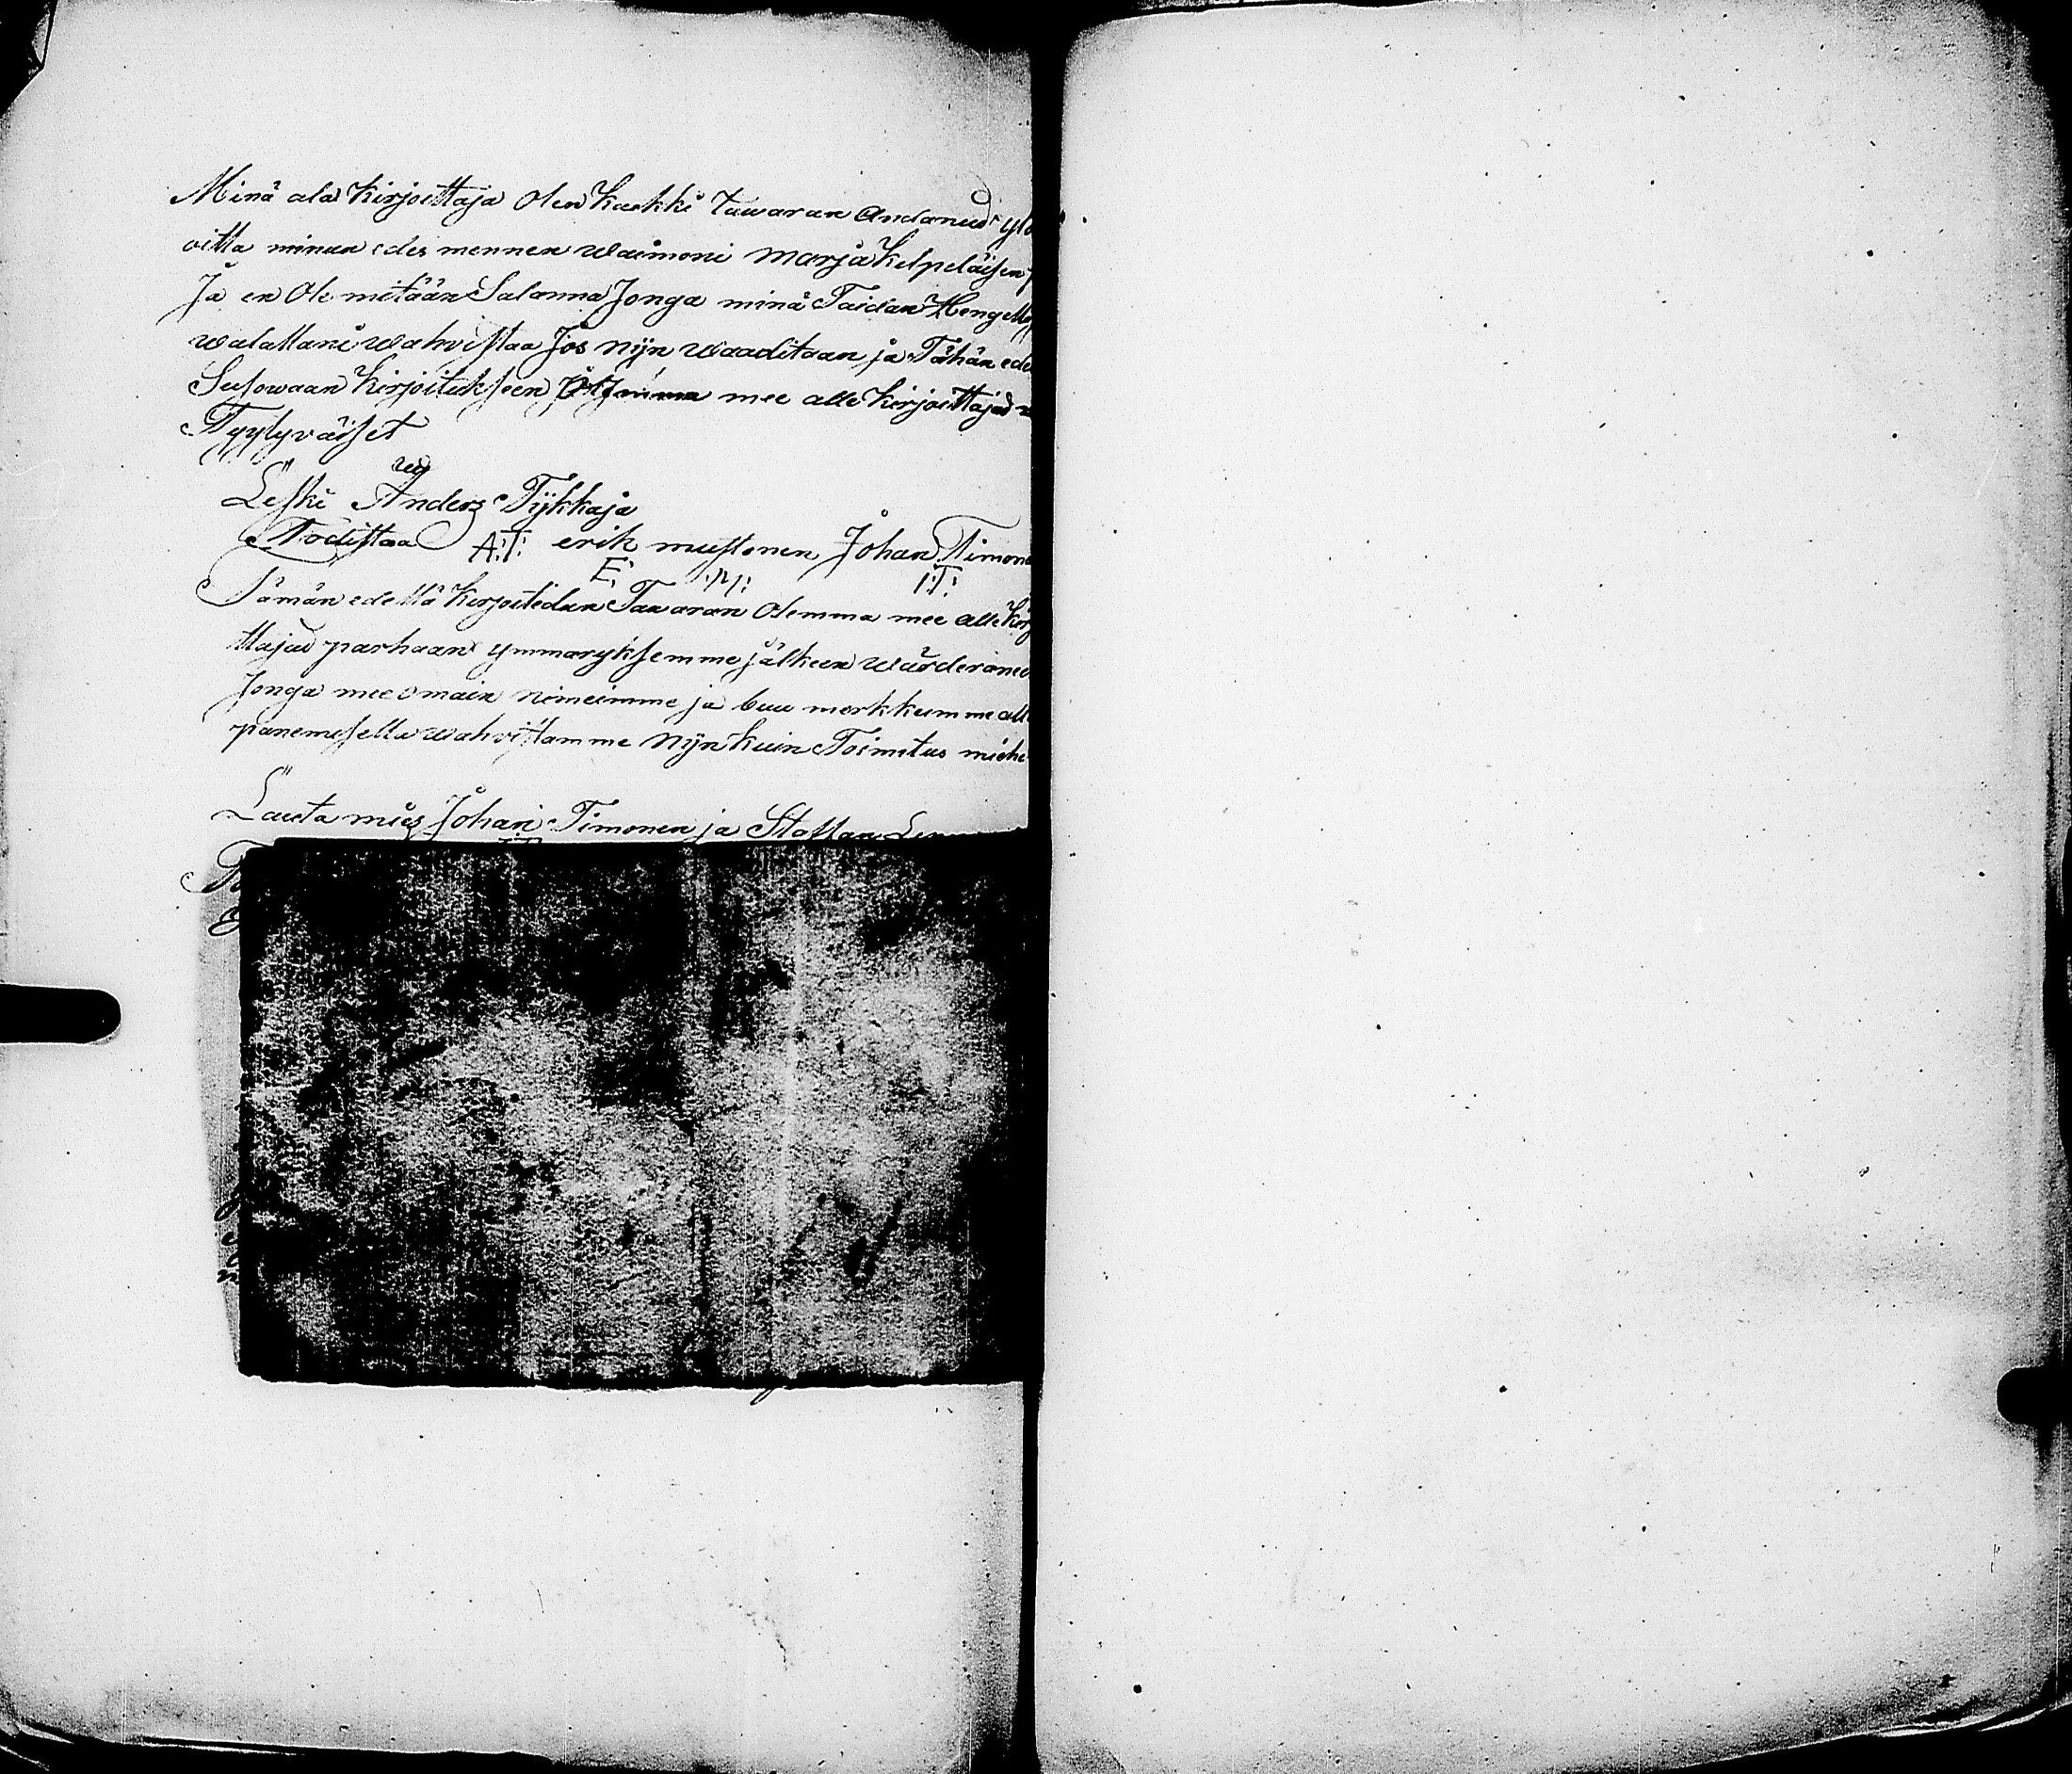 Minä ala Kirjoittaja Olen Kaikki Tawaran Andanud ylö
oitta minun edes mennen Waimoni Marja Kelpeläisen
Ja en Ole mitään Salanna Jonga minä Taidan Hengell
walallani wahvistaa Jos nijn waaditaan ja Tähän ede
Seisowaan Kirjoitukseen Olemma mee alle Kirjoittajad
Tyytyväiset
Leski Anders Tykkaja
Todistaa A:T: erik mustonen Johan Timone
E: M: I:T:
Tämän edellä Kirjoitedun Tawaran Olemma mee alle Kirj
ttajad parhaan ymmaryksemme jälkeen wärderanee
Jonga mee omain nimeimme ja buu merkkumme all
panemisella wahvistamme Nijn kuin Toimitus miehe
Lauta mies Johan Timonen ja Staffan